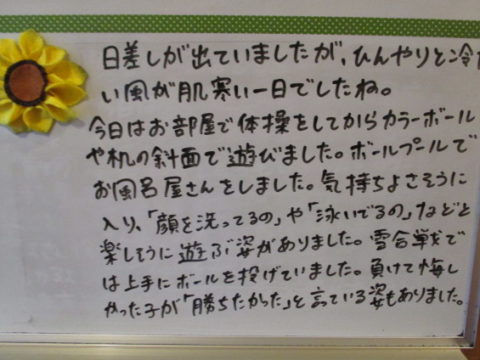 日差しが出ていましたが、ひんやりと冷た
い風が肌寒い一日でしたね。
今日はお部屋で体操をしてからカラーボール
や机の斜面で遊びました。ボールプールで
お風呂屋さんをしました。気持ちよさそうに
入り、「顔を洗ってるの」や「泳いでるの」などと
楽しそうに遊ぶ姿がありました。雪合戦で
は上手にボールを投げていました。負けて悔し
かった子が「勝ちたかった」と言っている姿もありました。